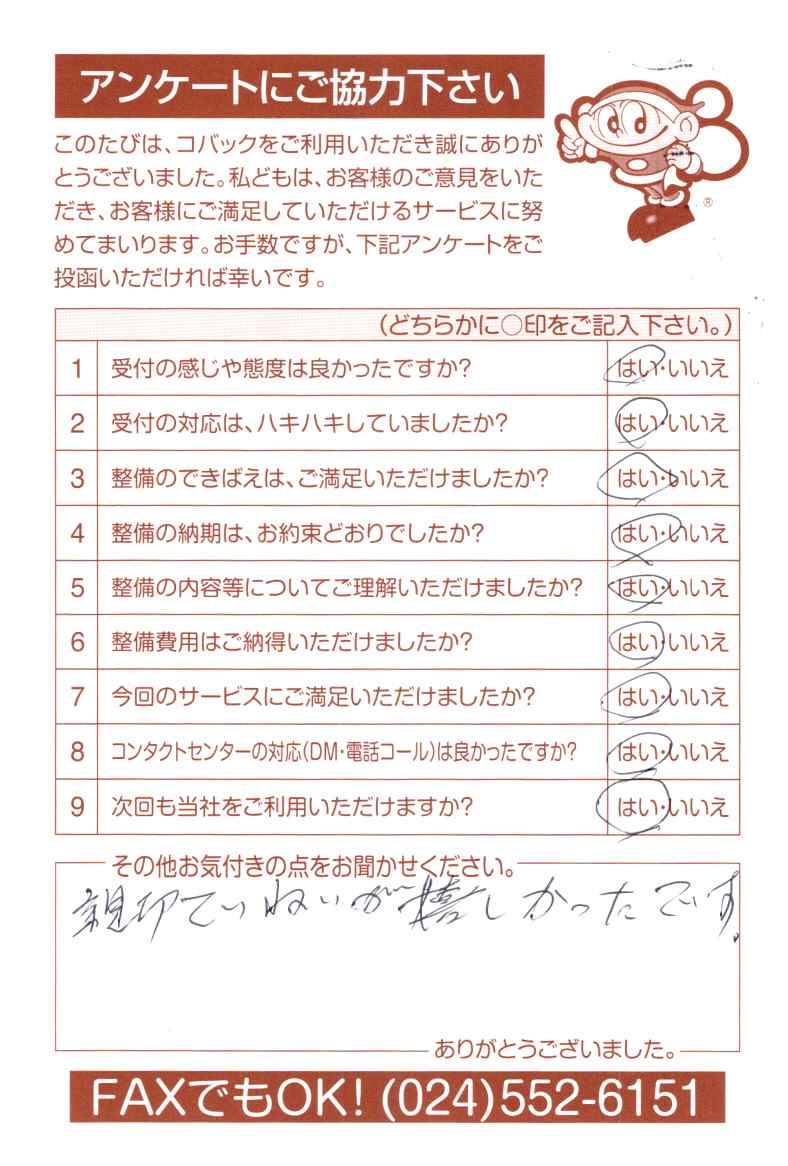 アンケートにご協力下さい
このたびは、コバックをご利用いただき誠にありが
とうございました。私どもは、お客様のご意見をいた
だき、お客様にご満足していただけるサービスに努
めてまいります。お手数ですが、下記アンケートをご
投函いただければ幸いです。
®
(どちらかに○印をご記入下さい。)
1 受付の感じや態度は良かったですか? はい・いいえ
2 受付の対応は、ハキハキしていましたか? はい・いいえ
3 整備のできばえは、ご満足いただけましたか? はい・いいえ
4 整備の納期は、お約束どおりでしたか? はい・いいえ
5 整備の内容等についてご理解いただけましたか? はい・いいえ
6 整備費用はご納得いただけましたか? はい・いいえ
7 今回のサービスにご満足いただけましたか? はい・いいえ
8 コンタクトセンターの対応(DM・電話コール)は良かったですか? はい・いいえ
9 次回も当社をご利用いただけますか? はい・いいえ
その他お気付きの点をお聞かせください。
親切ていねいが嬉しかったです。
ありがとうございました。
FAXでもOK! (024)552-6151